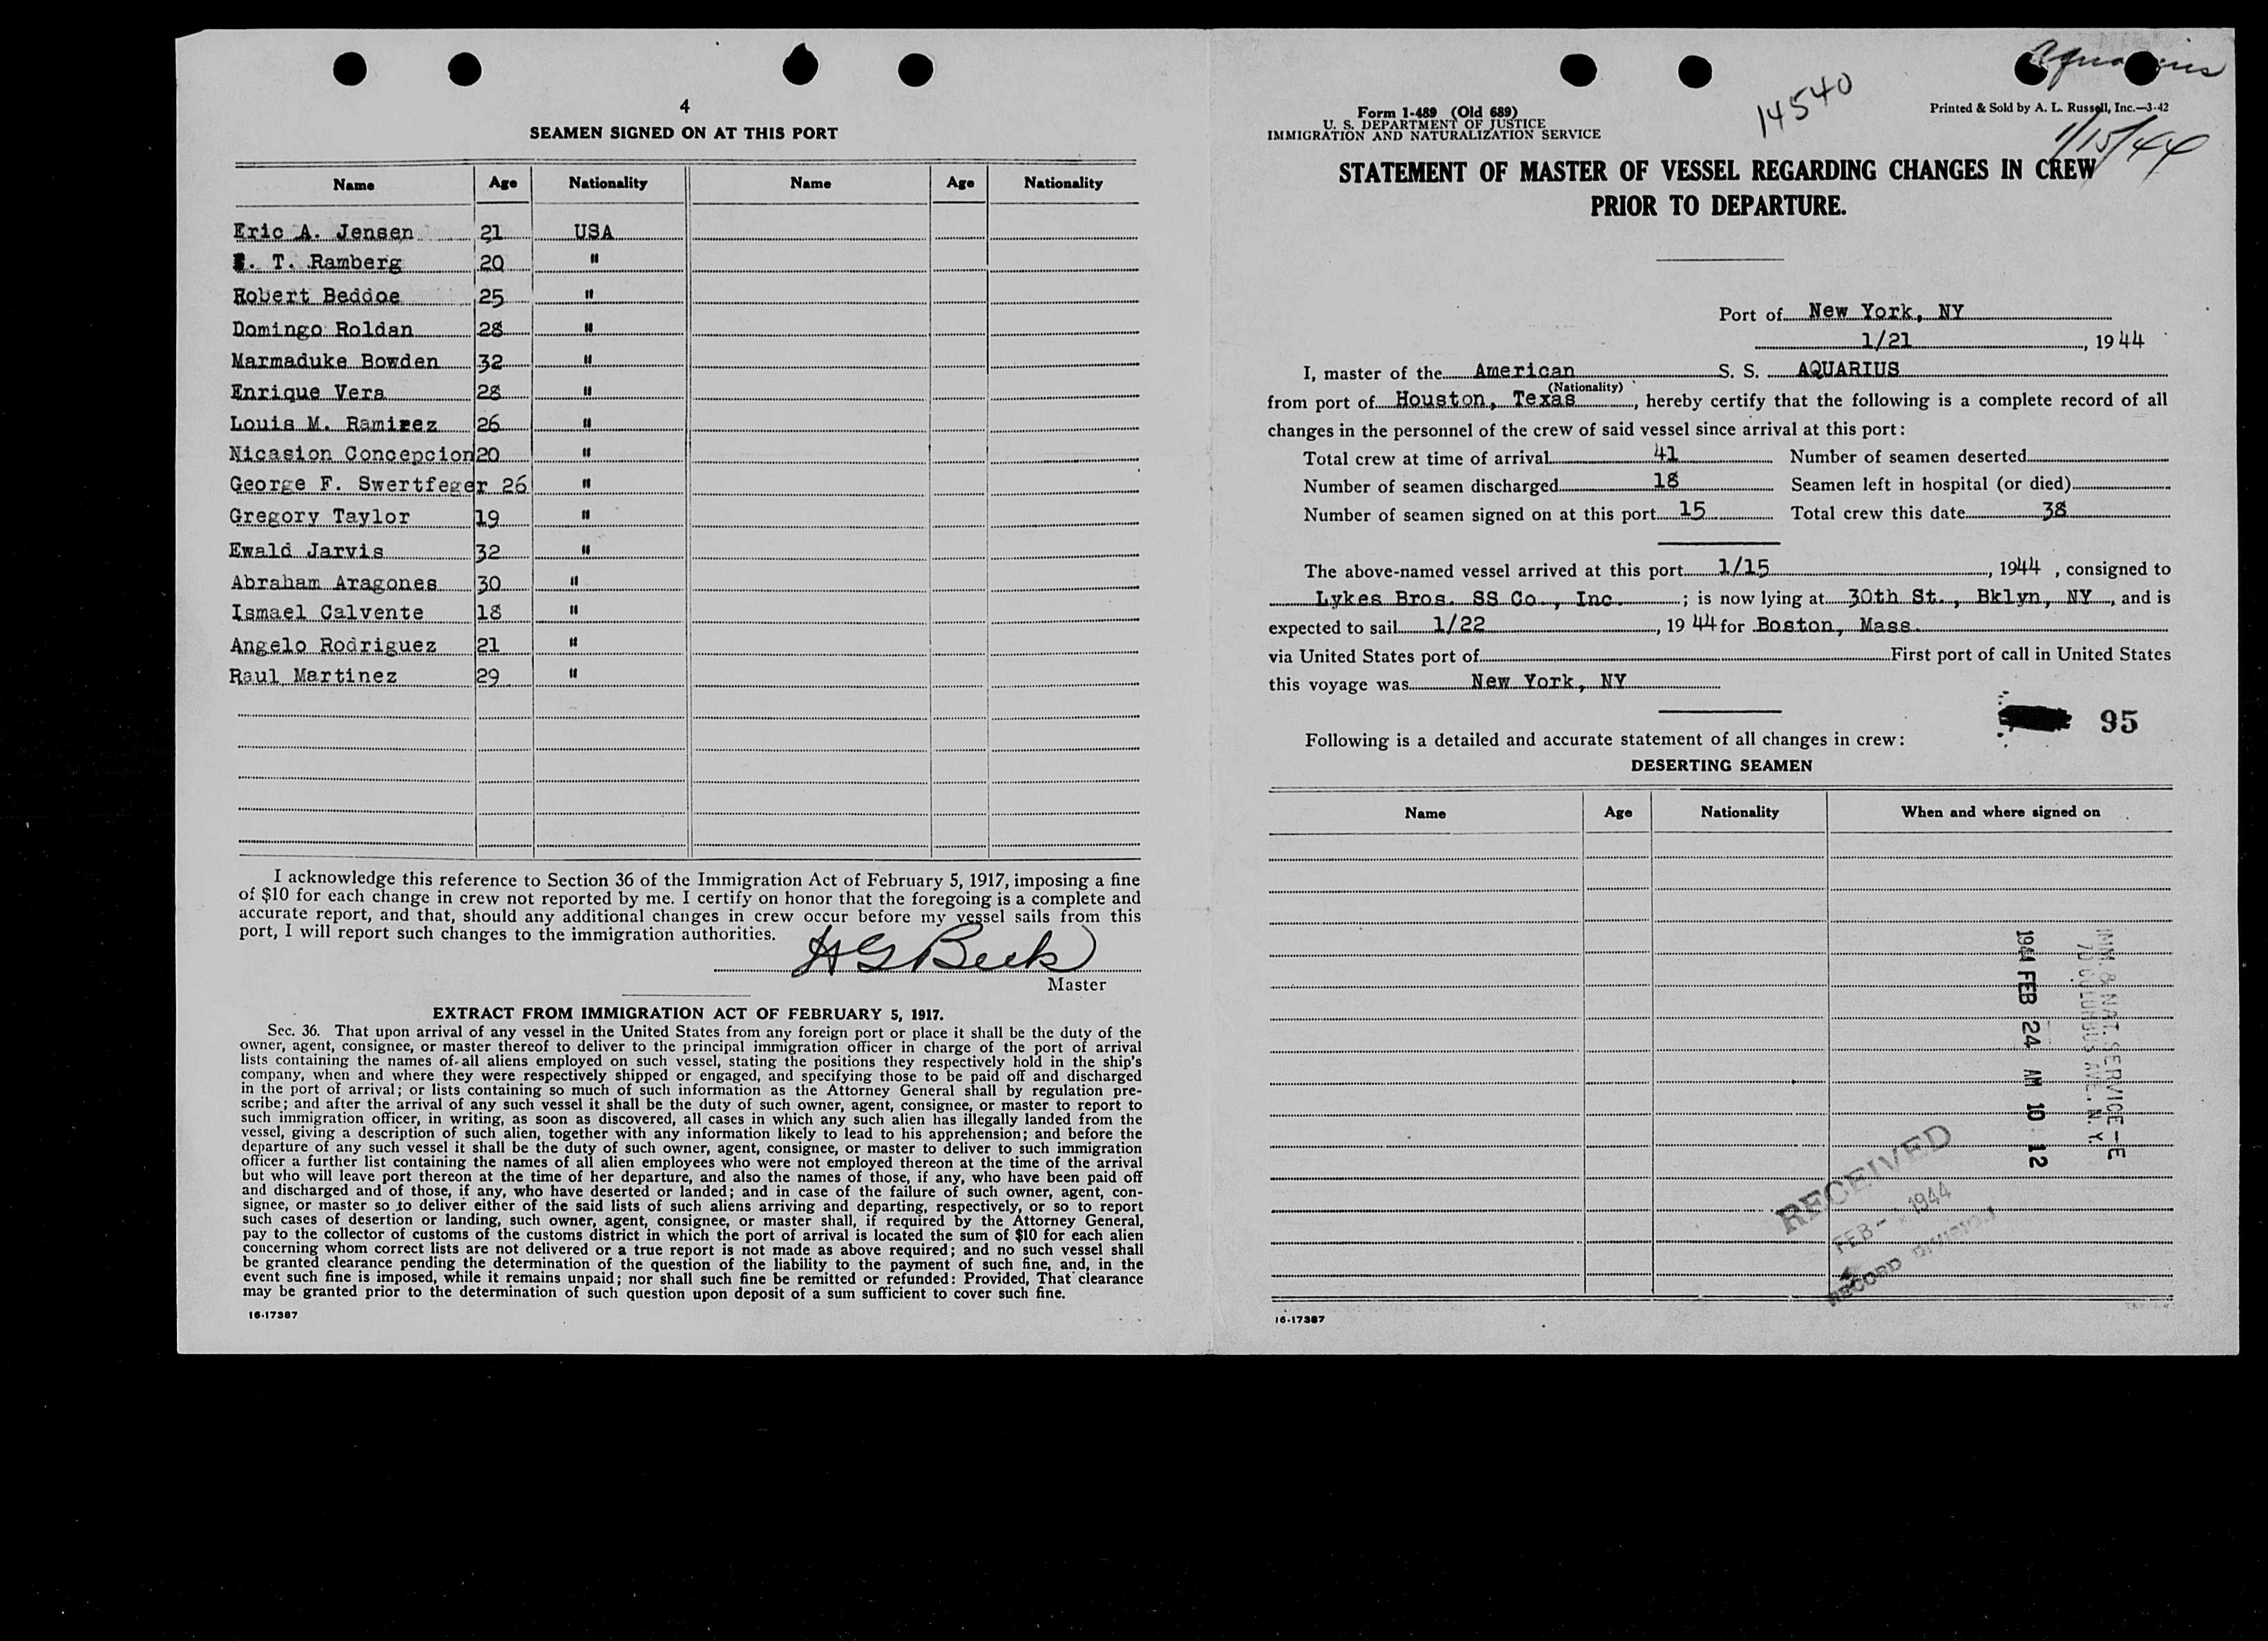 4
SEAMEN SIGNED ON AT THIS PORT
Name Age Nationality Name Age Nationality
Eric A. Jensen 21 USA
. T. Ramberg 20 "
Robert Beddoe 25 "
Domingo Roldan 28 "
Marmaduke Bowden 32 "
Enrique Vera 28 "
Louis M. Ramirez 26 "
Nicasion Concepcion 20 "
George F. Swertfeger 26 "
Gregory Taylor 19 "
Ewald Jarvis 32 "
Abraham Aragones 30 "
Ismael Calvente 18 "
Angelo Rodriguez 21 "
Raul Martinez 29 "
I acknowledge this reference to Section 36 of the Immigration Act of February 5, 1917, imposing a fine
of $10 for each change in crew not reported by me. I certify on honor that the foregoing is a complete and
accurate report, and that, should any additional changes in crew occur before my vessel sails from this
port, I will report such changes to the immigration authorities.
H G Beck
Master
EXTRACT FROM IMMIGRATION ACT OF FEBRUARY 5, 1917.
Sec. 36. That upon arrival of any vessel in the United States from any foreign port or place it shall be the duty of the
owner, agent, consignee, or master thereof to deliver to the principal immigration officer in charge of the port of arrival
lists containing the names of all aliens employed on such vessel, stating the positions they respectively hold in the ship's
company, when and where they were respectively shipped or engaged, and specifying those to be paid off and discharged
in the port of arrival; or lists containing so much of such information as the Attorney General shall by regulation pre-
scribe; and after the arrival of any such vessel it shall be the duty of such owner, agent, consignee, or master to report to
such immigration officer, in writing, as soon as discovered, all cases in which any such alien has illegally landed from the
vessel, giving a description of such alien, together with any information likely to lead to his apprehension; and before the
departure of any such vessel it shall be the duty of such owner, agent, consignee, or master to deliver to such immigration
officer a further list containing the names of all alien employees who were not employed thereon at the time of the arrival
but who will leave port thereon at the time of her departure, and also the names of those, if any, who have been paid off
and discharged and of those, if any, who have deserted or landed; and in case of the failure of such owner, agent, con-
signee, or master so to deliver either of the said lists of such aliens arriving and departing, respectively, or so to report
such cases of desertion or landing, such owner, agent, consignee, or master shall, if required by the Attorney General,
pay to the collector of customs of the customs district in which the port of arrival is located the sum of $10 for each alien
concerning whom correct lists are not delivered or a true report is not made as above required; and no such vessel shall
be granted clearance pending the determination of the question of the liability to the payment of such fine, and, in the
event such fine is imposed, while it remains unpaid; nor shall such fine be remitted or refunded: Provided, That clearance
may be granted prior to the determination of such question upon deposit of a sum sufficient to cover such fine.
16-17387
Aquarius
14540
Form I-489 (Old 689)
U. S. DEPARTMENT OF JUSTICE
IMMIGRATION AND NATURALIZATION SERVICE
Printed & Sold by A. L. Russell, Inc.—3-42
1/15/44
STATEMENT OF MASTER OF VESSEL REGARDING CHANGES IN CREW
PRIOR TO DEPARTURE.
Port of New York, NY
1/21, 1944
I, master of the American S. S. AQUARIUS
(Nationality)
from port of Houston, Texas, hereby certify that the following is a complete record of all
changes in the personnel of the crew of said vessel since arrival at this port:
Total crew at time of arrival 41 Number of seamen deserted
Number of seamen discharged 18 Seamen left in hospital (or died)
Number of seamen signed on at this port 15 Total crew this date 38
The above-named vessel arrived at this port 1/15, 1944, consigned to
Lykes Bros. SS Co., Inc. ; is now lying at 30th St., Bklyn, NY, and is
expected to sail 1/22, 1944 for Boston, Mass.
via United States port of First port of call in United States
this voyage was New York, NY
95
Following is a detailed and accurate statement of all changes in crew:
DESERTING SEAMEN
Name Age Nationality When and where signed on
IMM & NAT. SERVICE - E
70 COLUMBUS AVE. N.Y.
1944 FEB 24 AM 10 12
RECEIVED
FEB - 1944
RECORD DIVISION
16-17387